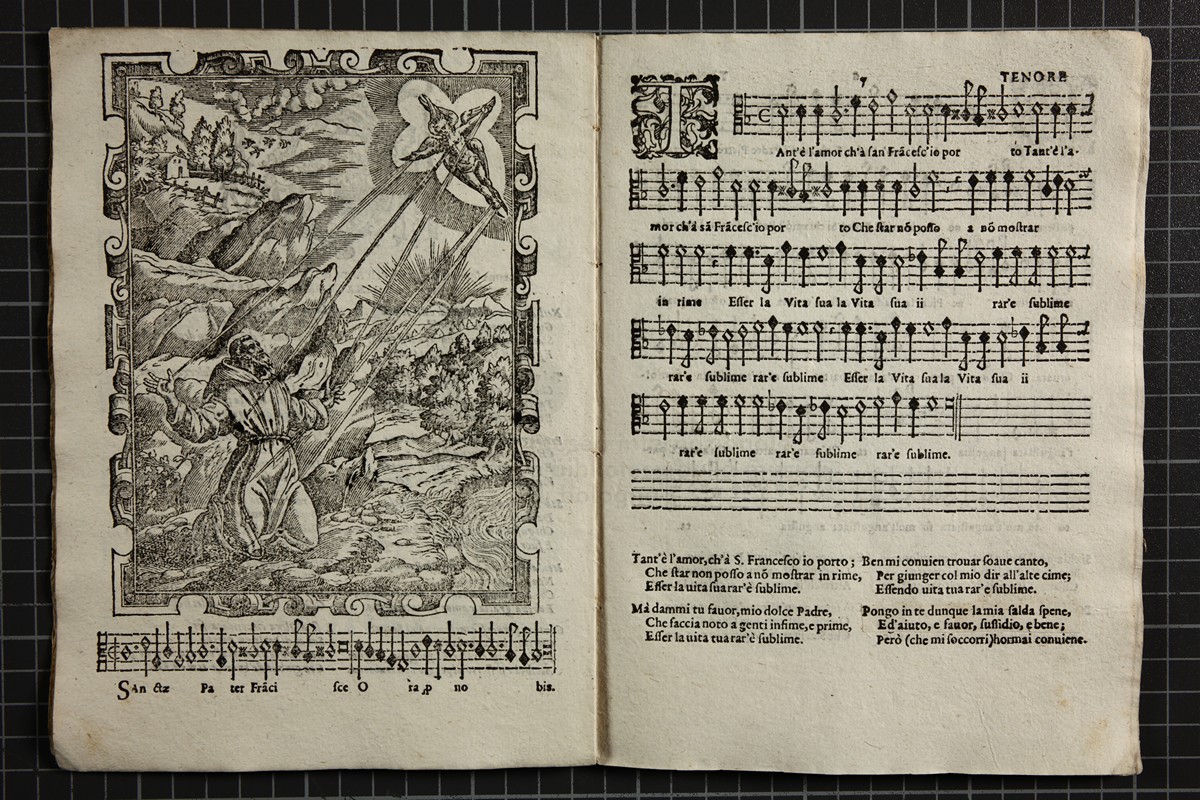 San ctæ Pa ter Frãci sce O ra ꝓ no bis.
7
TENORE
TAnt'è l'amor ch'à san Frãcesc'io por to Tant'è l'a-
mor ch'à sã Frãcesc'io por to Che star nõ posso a nõ mostrar
in rime Esser la Vita sua la Vita sua ii rar'e sublime
rar'e sublime rar'e sublime Esser la Vita sua la Vita sua ii
rar'e sublime rar'e sublime rar'e sublime.
Tant'è l'amor, ch'à S. Francesco io porto;
Che star non posso a nõ mostrar in rime,
Esser la uita sua rar'è sublime.
Mà dammi tu fauor, mio dolce Padre,
Che faccia noto a genti infime, e prime,
Esser la uita tua rar'è sublime.
Ben mi conuien trouar soaue canto,
Per giunger col mio dir all'alte cime;
Essendo uita tua rar'e sublime.
Pongo in te dunque la mia salda spene,
Ed'aiuto, e fauor, sussidio, e bene;
Però (che mi soccorri) hormai conuiene.